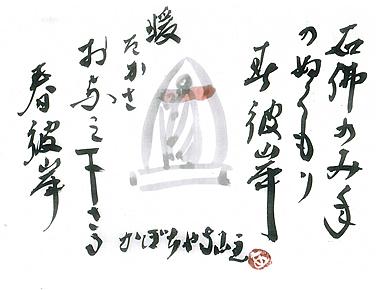 石佛のみ手
のぬくもり
春彼岸
暖
たかさ
お与え下さる
春彼岸
かぼちゃ寺山主